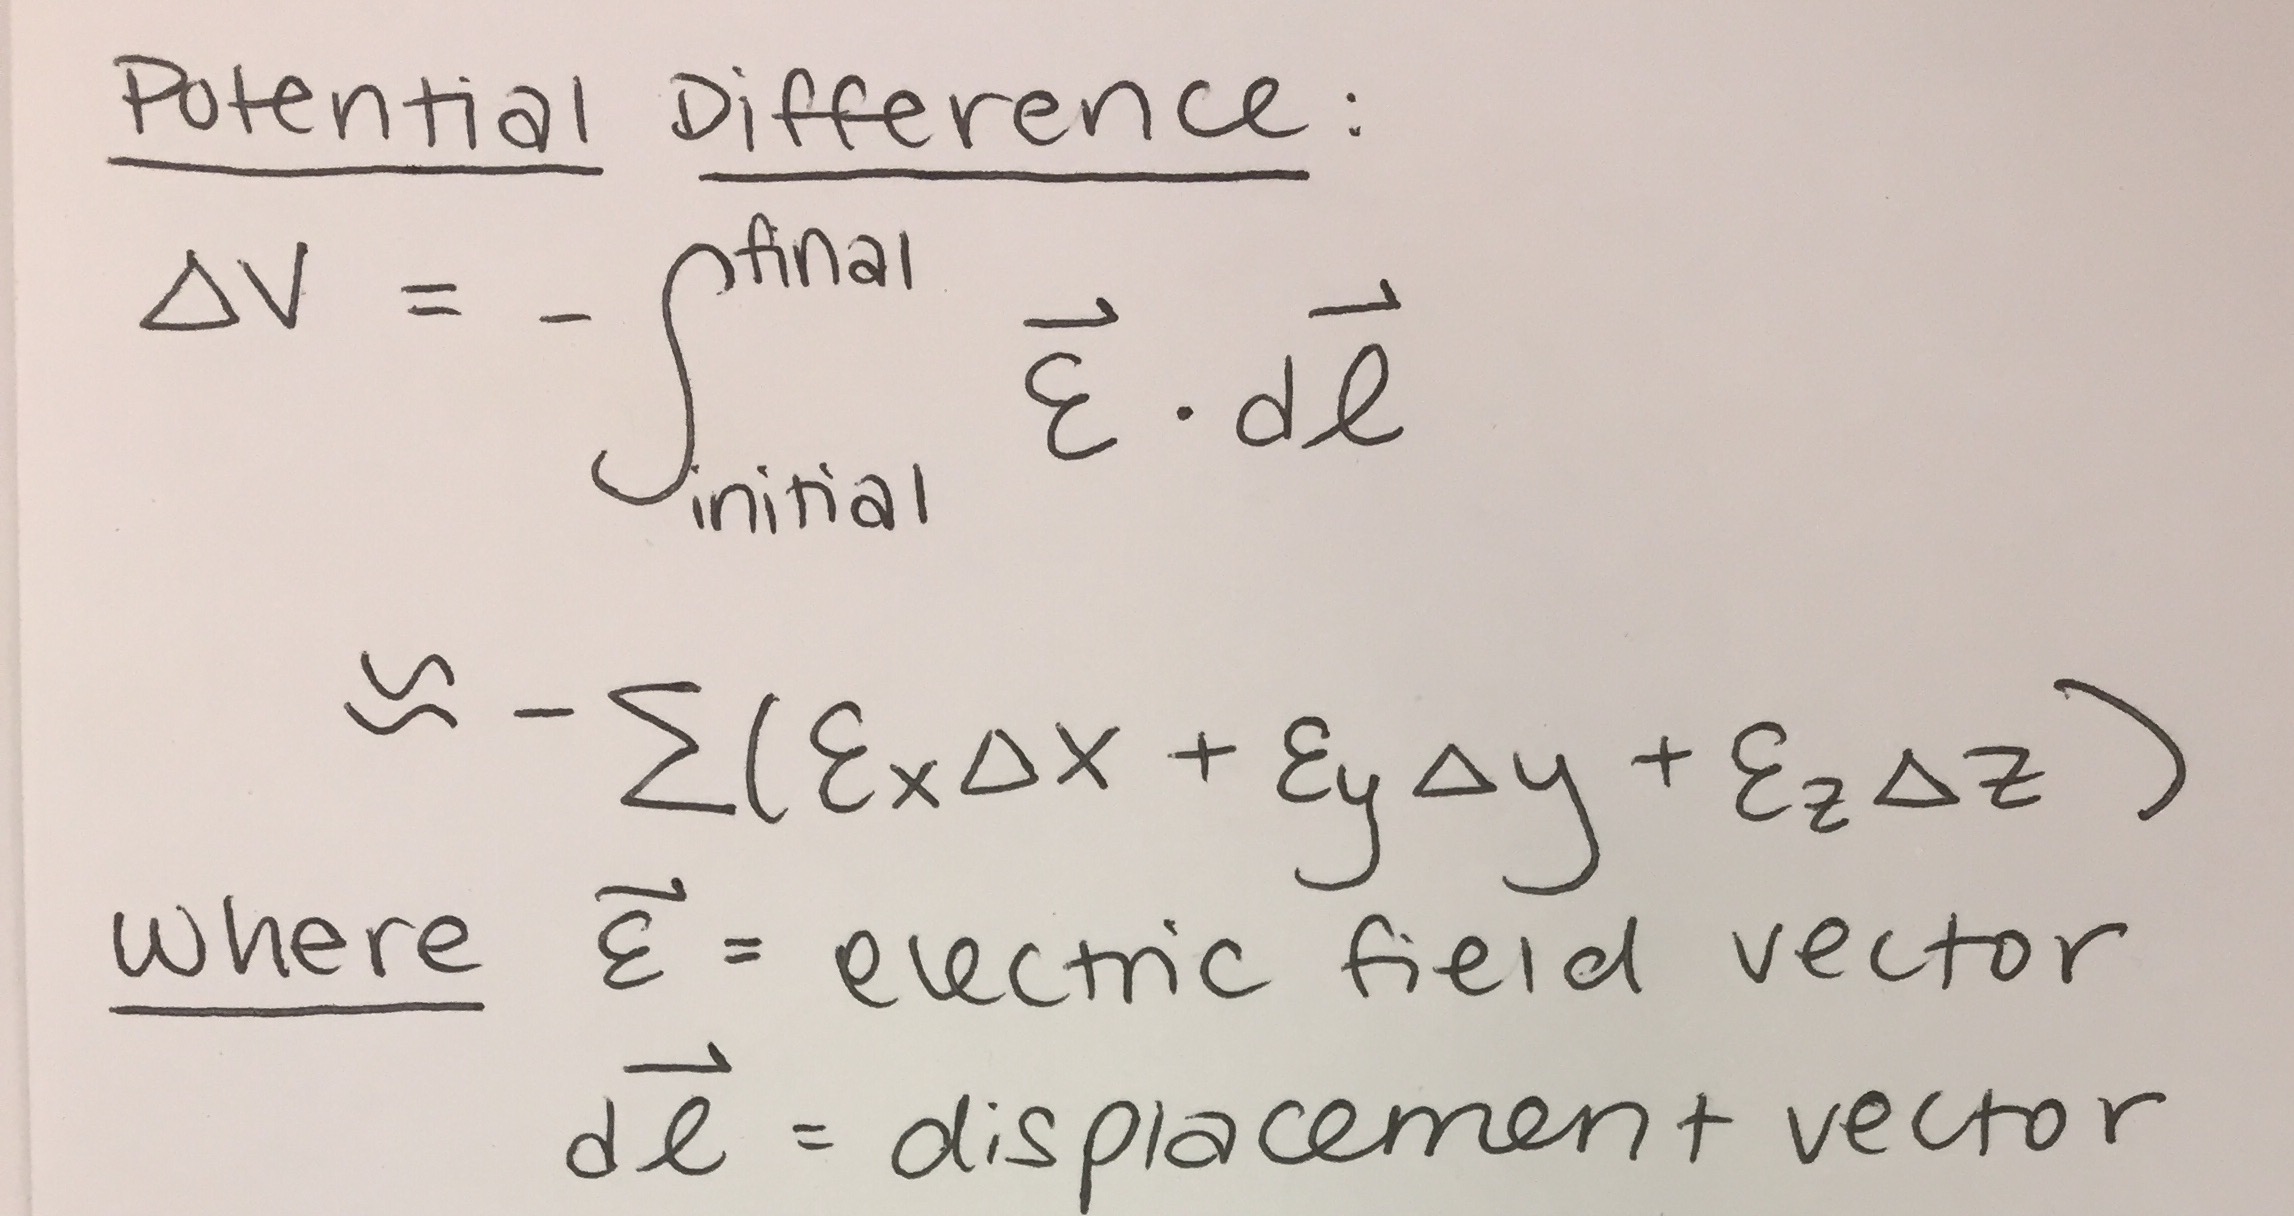 Potential Difference:
ΔV = -∫_initial^final ℰ⃗ · dℓ⃗
≈ -Σ(ℰ_x Δx + ℰ_y Δy + ℰ_z Δz)
where ℰ⃗ = electric field vector
dℓ⃗ = displacement vector